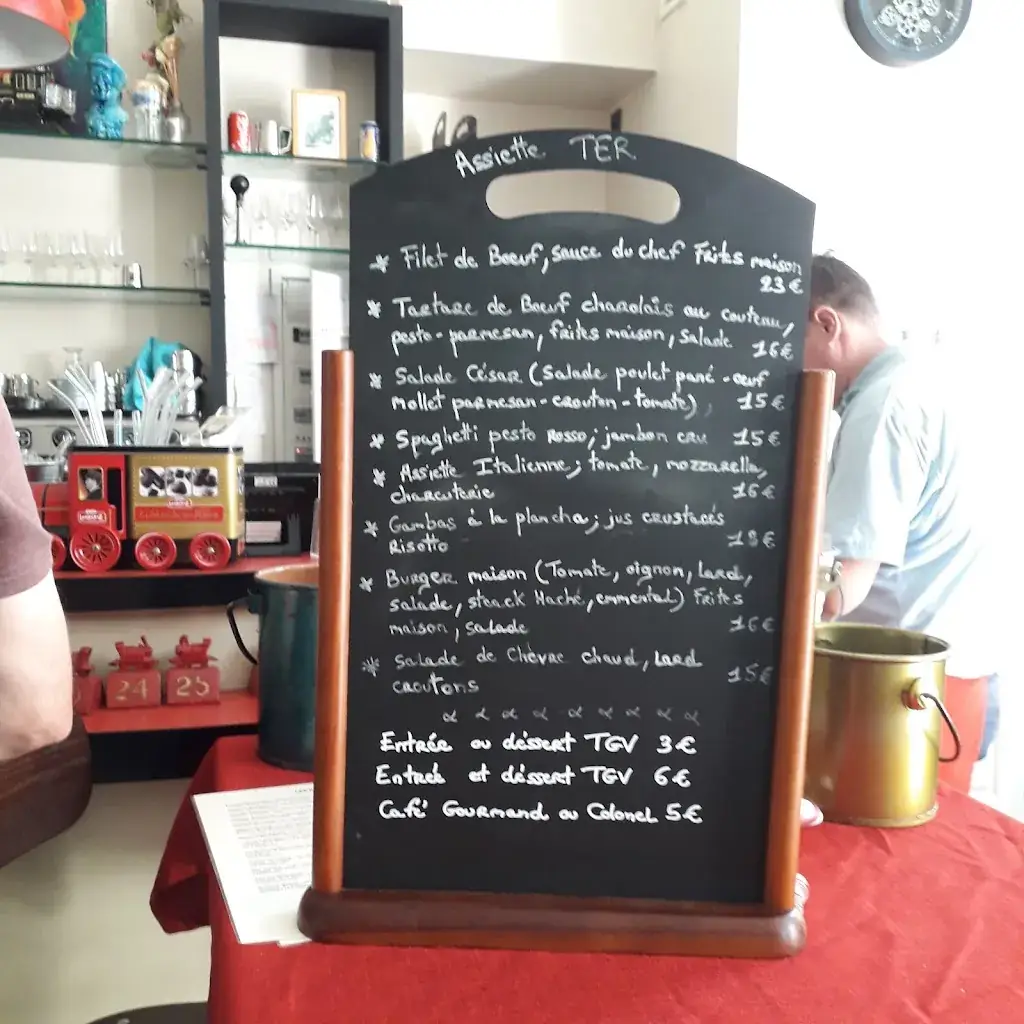 Assiette TER
* Filet de Boeuf, sauce du chef Frites maison
23€
* Tartare de Boeuf charolais au couteau,
pesto-parmesan, frites maison, salade 16€
* Salade César (Salade poulet pané-oeuf
mollet parmesan-crouton-tomate), 15€
* Spaghetti pesto Rosso; jambon cru 15€
* Assiette Italienne; tomate, mozzarella,
charcuterie 16€
* Gambas à la plancha; jus crustacés
Risotto 18€
* Burger maison (Tomate, oignon, lard,
salade, steack Haché, emmental) Frites
maison, salade 16€
* Salade de Chèvre chaud, lard
croutons 15€
Entrée ou déssert TGV 3€
Entreé et déssert TGV 6€
Café Gourmand ou Colonel 5€
24 25